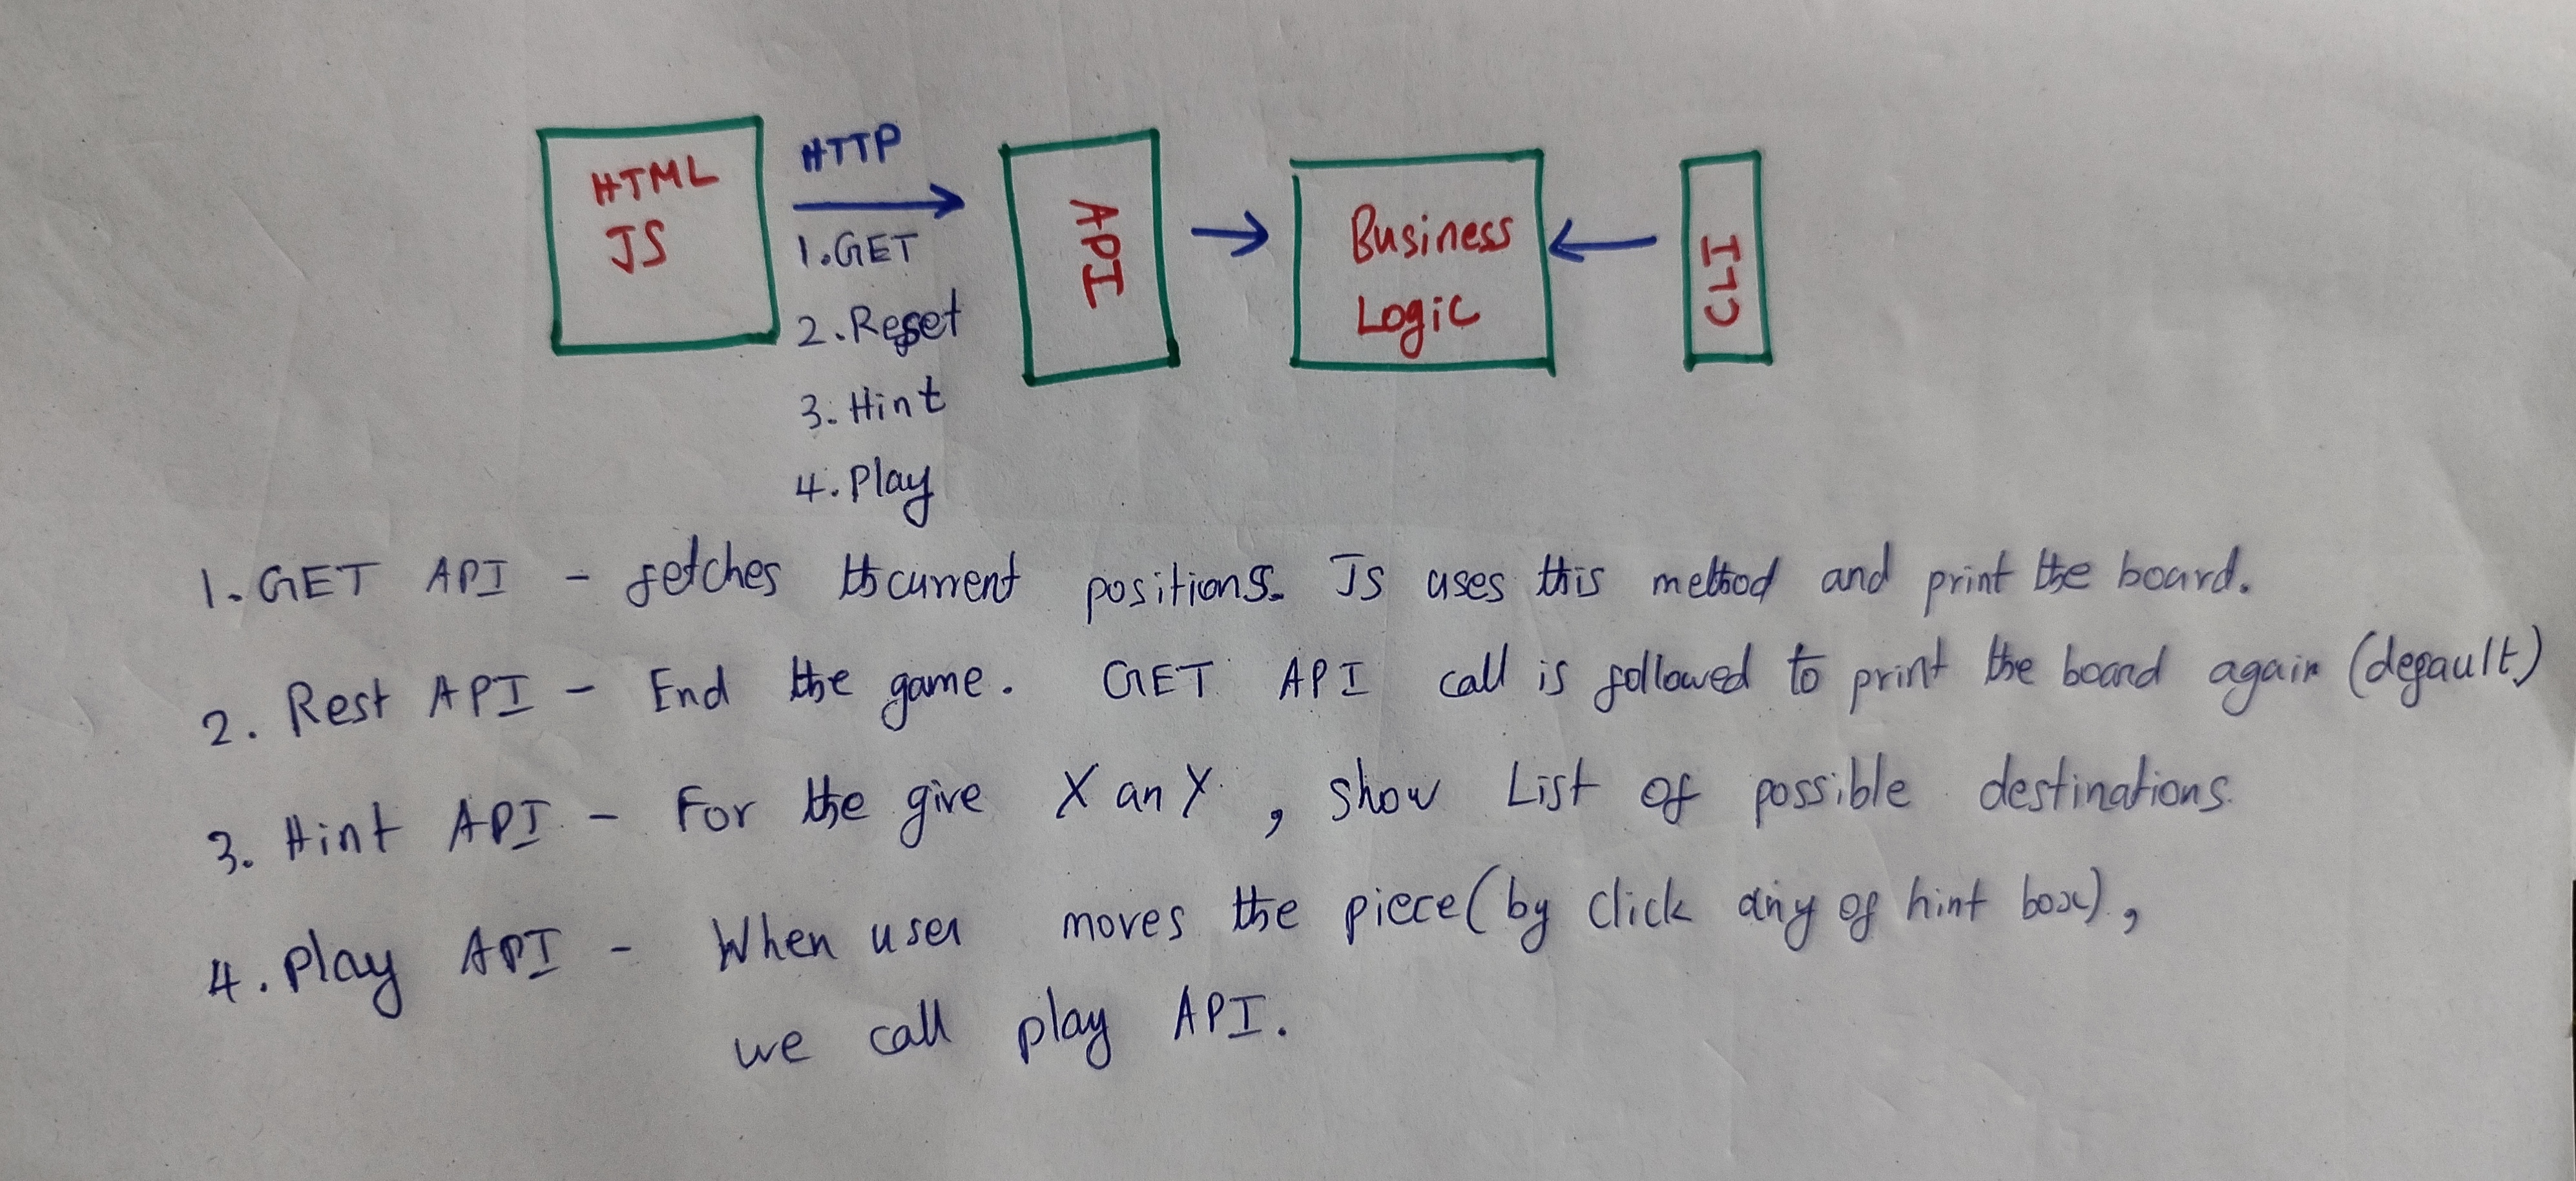 HTML
JS
HTTP
1.GET
2.Reset
3. Hint
4. Play
API
Business
Logic
CLI
1. GET API - fetches thcurrent positions. JS uses this method and print the board.
2. Rest API - End the game. GET API call is followed to print the board again (default)
3. Hint API - For the give X an Y, show List of possible destinations.
4. Play API - When user moves the piece (by click any of hint box),
we call play API.